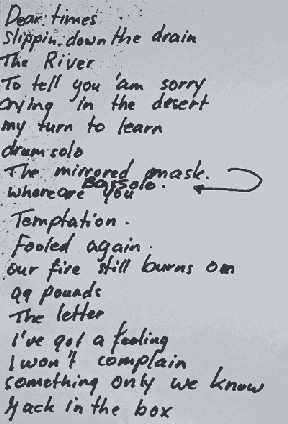 Dear times
Slippin down the drain
The River
To tell you 'am sorry
crying in the desert
my turn to learn
drumsolo
The mirrored mask.
Bassolo.
where are you
Temptation.
Fooled again.
our fire still burns on
99 pounds
The letter
I've got a feeling
I won't complain
something only we know
Hack in the box